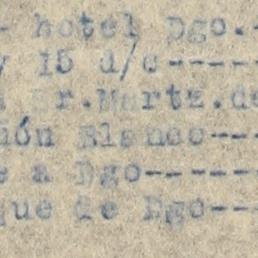 - hotel Dgo.-
y 15 d/c-----
Sr.Martz.de
ión Blanco---
e a Dgo------
que de Dgo---